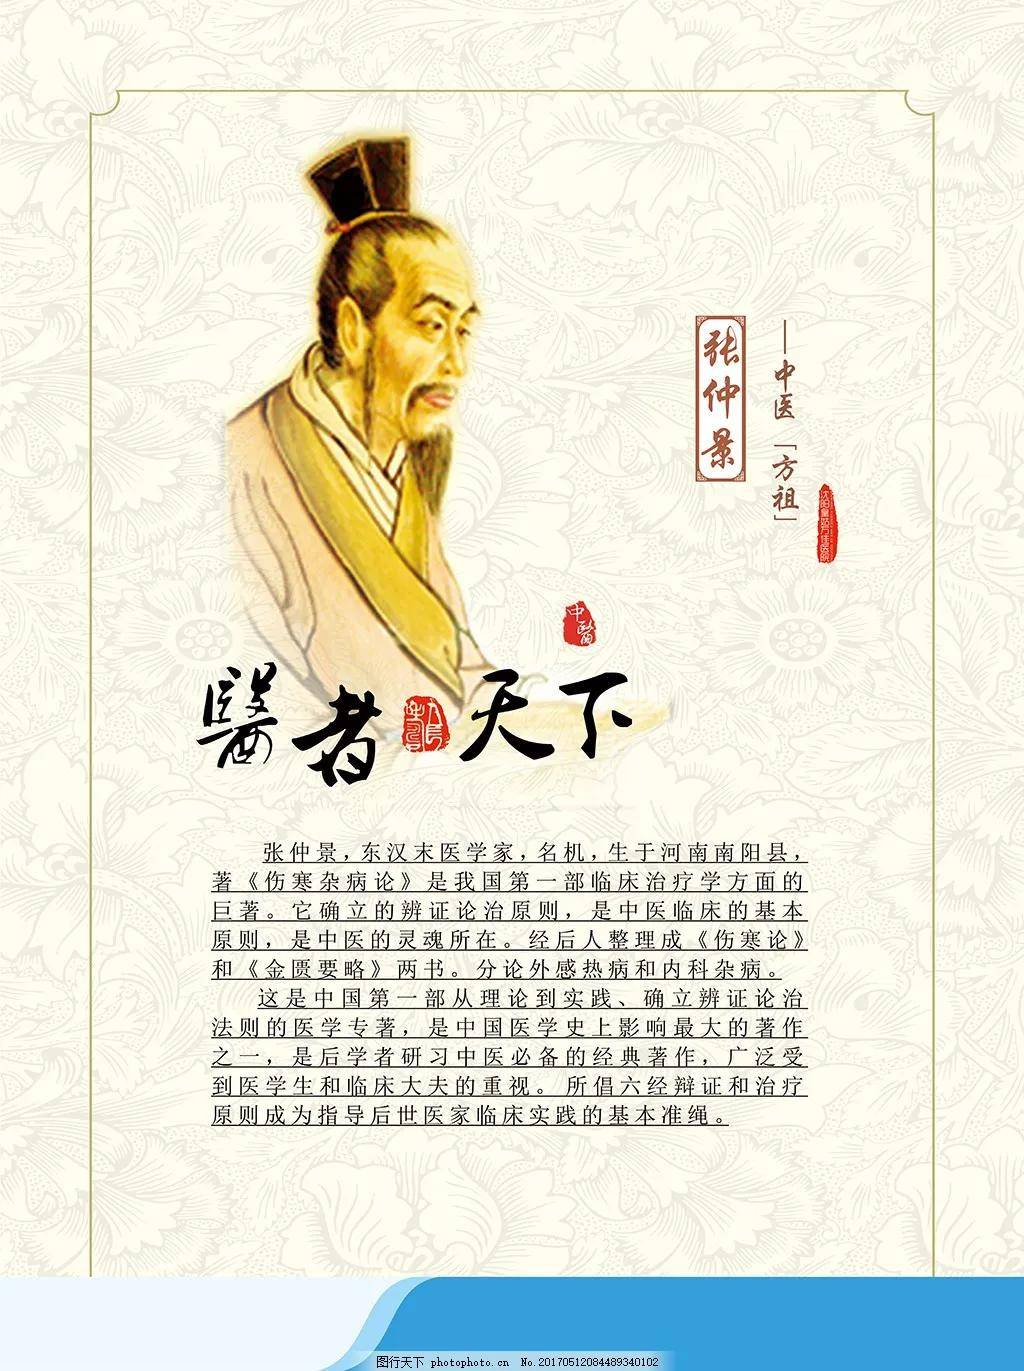 张仲景
—中医「方祖」
中醫
醫者天下
张仲景，东汉末医学家，名机，生于河南南阳县，
著《伤寒杂病论》是我国第一部临床治疗学方面的
巨著。它确立的辨证论治原则，是中医临床的基本
原则，是中医的灵魂所在。经后人整理成《伤寒论》
和《金匮要略》两书。分论外感热病和内科杂病。
这是中国第一部从理论到实践、确立辨证论治
法则的医学专著，是中国医学史上影响最大的著作
之一，是后学者研习中医必备的经典著作，广泛受
到医学生和临床大夫的重视。所倡六经辩证和治疗
原则成为指导后世医家临床实践的基本准绳。
图行天下 photophoto.cn No.20170512084489340102